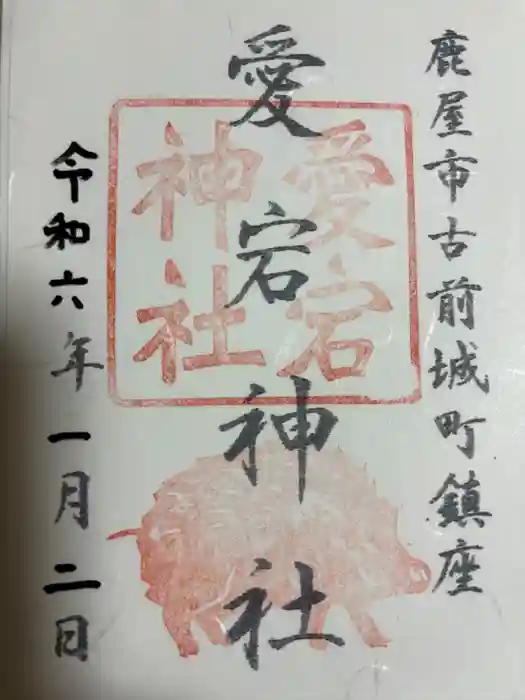 鹿屋市古前城町鎮座
愛宕神社
愛宕
神社
令和六年一月二日